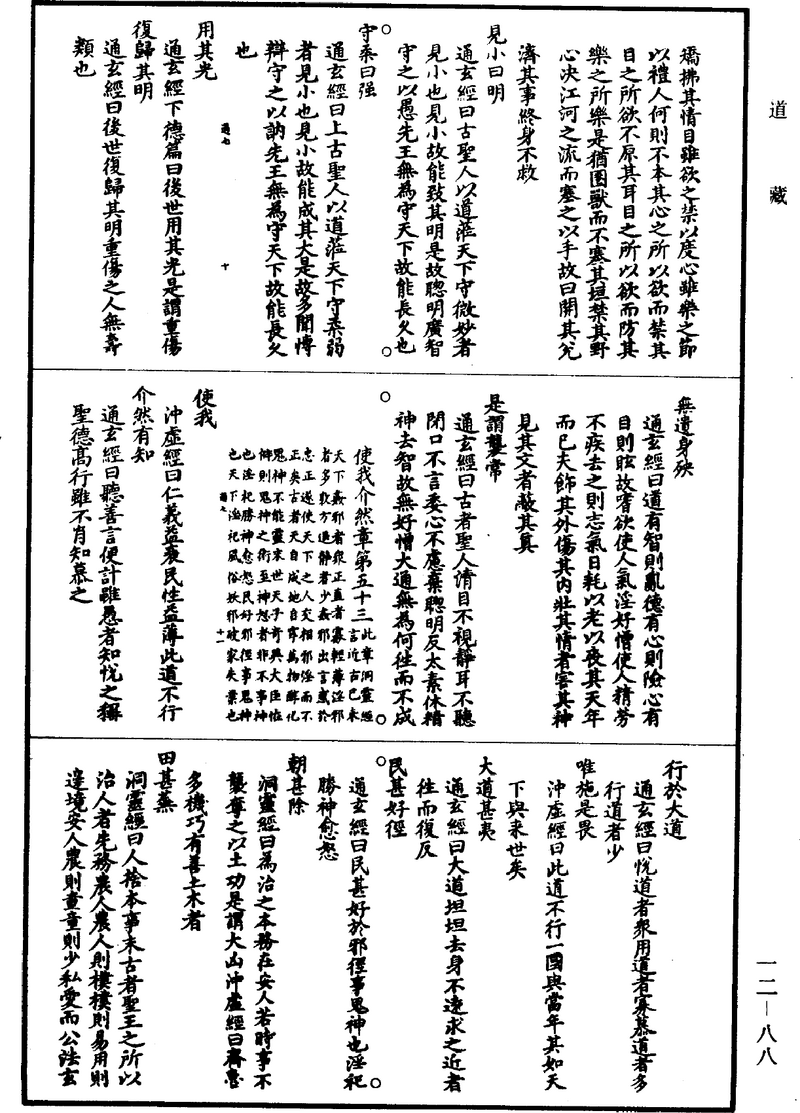 道藏
矯拂其情目雖欲之禁以度心雖樂之節
以禮人何則不本其心之所以欲而禁其
目之所欲不原其耳目之所以欲而防其
樂之所樂是猶囿獸而不塞其垣禁其野
心决江河之流而塞之以手故曰開其兌
濟其事終身不救
見小曰明
通玄經曰古聖人以道蒞天下守微妙者
見小也見小故能致其明是故聰明廣智
守之以愚先王無為守天下故能長久也
守柔曰强
通玄經曰上古聖人以道蒞天下守柔弱
者見小也見小故能成其大是故多聞博
辯守之以訥先王無為守天下故能長久
也
用其光
通玄經下德篇曰後世用其光是謂重傷
復歸其明
通玄經曰後世復歸其明重傷之人無壽
類也
無遺身殃
通玄經曰道有智則亂德有心則險心有
目則眩故嗜欲使人氣淫好憎使人精勞
不疾去之則志氣日耗以老以喪其天年
而已夫飾其外傷其內壯其情者害其神
見其文者蔽其真
是謂襲常
通玄經曰古者聖人清目不視靜耳不聽
閉口不言委心不慮棄聰明反太素休精
神去智故無好憎大通無為何往而不成
使我介然章第五十三此章洞靈經言近古已來
天下姦邪者衆正直者寡輕薄淫邪
者多敦方退靜者少姦邪出言惑於
忠正遂使天下之人交相邪淫而不
正矣古者天自成地自寧萬物醇化
鬼神不能靈末世天子奇興大臣怪
僻則鬼神之術至神怒者非不事神
也淫祀勝神愈怒民好邪徑事鬼神
也天下淫祀風俗妖邪破家失業也
使我
沖虛經曰仁義益衰民性益薄此道不行
介然有知
通玄經曰聽善言便計雖愚者知悅之稱
聖德高行雖不肖知慕之
行於大道
通玄經曰悅道者衆用道者寡慕道者多
行道者少
唯施是畏
沖虛經曰此道不行一國與當年其如天
下與來世矣
大道甚夷
通玄經曰大道坦坦去身不遠求之近者
往而復反
民甚好徑
通玄經曰民甚好於邪徑事鬼神也淫祀
勝神愈怒
朝甚除
洞靈經曰為治之本務在安人若時事不
襲奪之以土功是謂大凶沖虛經曰齊魯
多機巧有善土木者
田甚蕪
洞靈經曰人捨本事末古者聖王之所以
治人者先務農人農人則樸樸則易用則
邊境安人農則童童則少私愛而公法玄
一二—八八